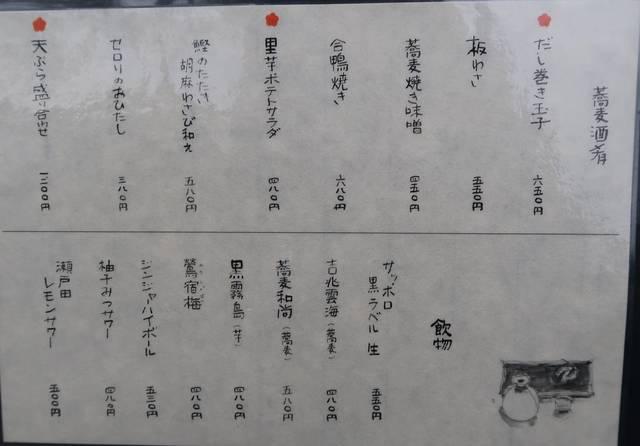 蕎麦酒肴
だし巻き玉子 六五〇円
板わさ 五五〇円
蕎麦焼き味噌 四五〇円
合鴨焼き 六八〇円
里芋ポテトサラダ 四八〇円
鰹のたたき
胡麻わさび和え 五八〇円
セロリのおひたし 三八〇円
天ぷら盛り合せ 一二〇〇円
飲物
サッポロ
黒ラベル 生 五五〇円
吉兆雲海（蕎麦） 四八〇円
蕎麦和尚（蕎麦） 五八〇円
黒霧島（芋） 四八〇円
鶯宿梅 四八〇円
ジンジャーハイボール 五三〇円
柚子みつサワー 四八〇円
瀬戸田
レモンサワー 五〇〇円